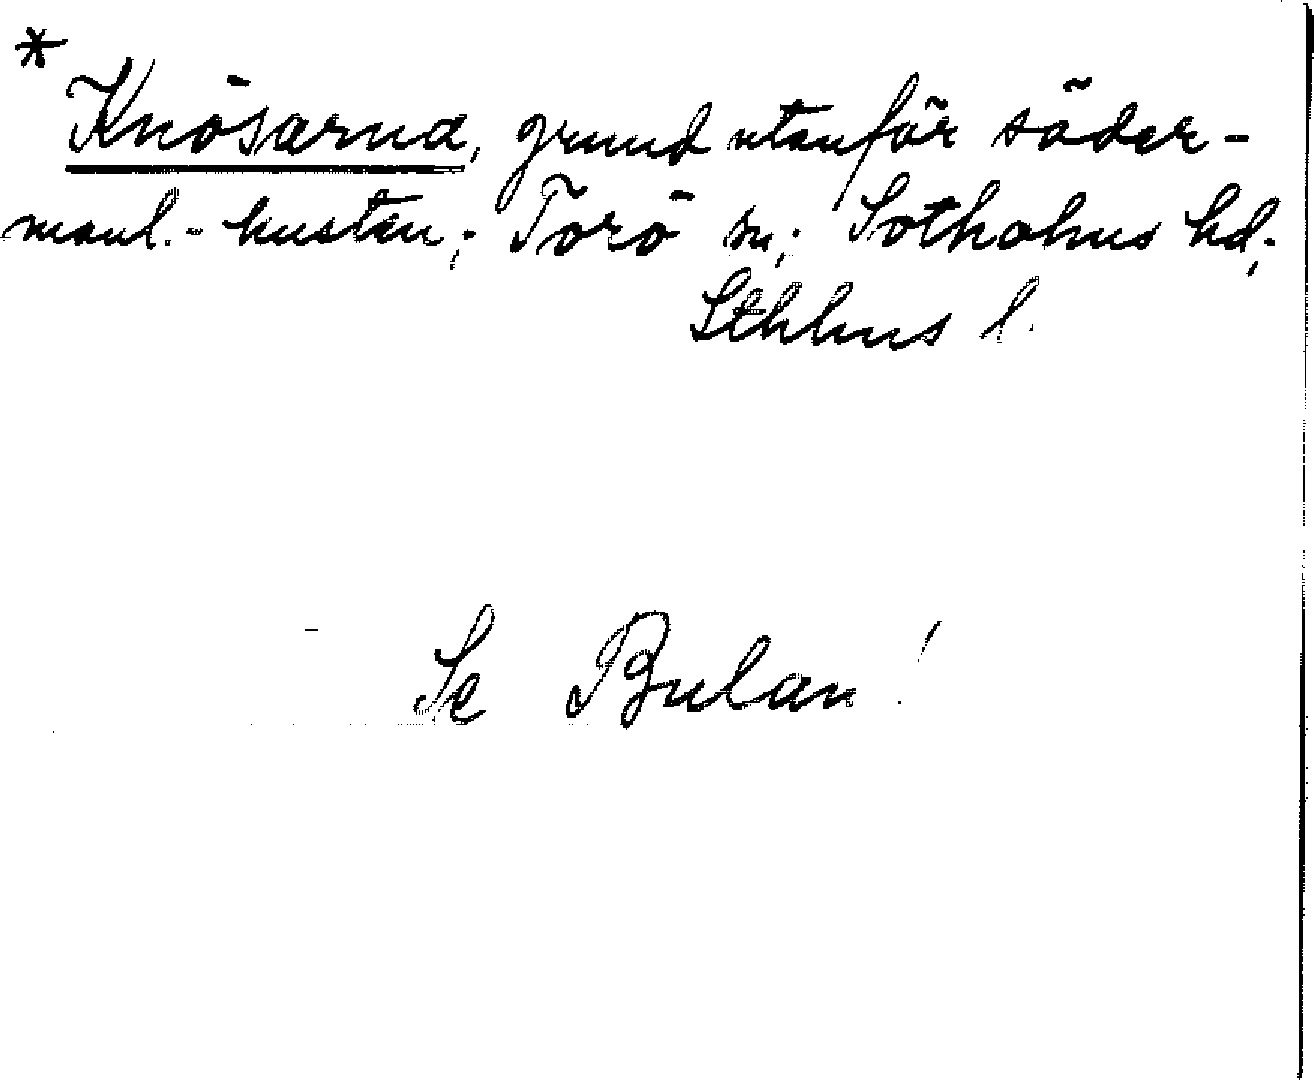 *
Knösarna, grund utanför söder-
manl.-kusten; Torö sn; Sotholms hd;
Sthlms l.
Se Bulan!